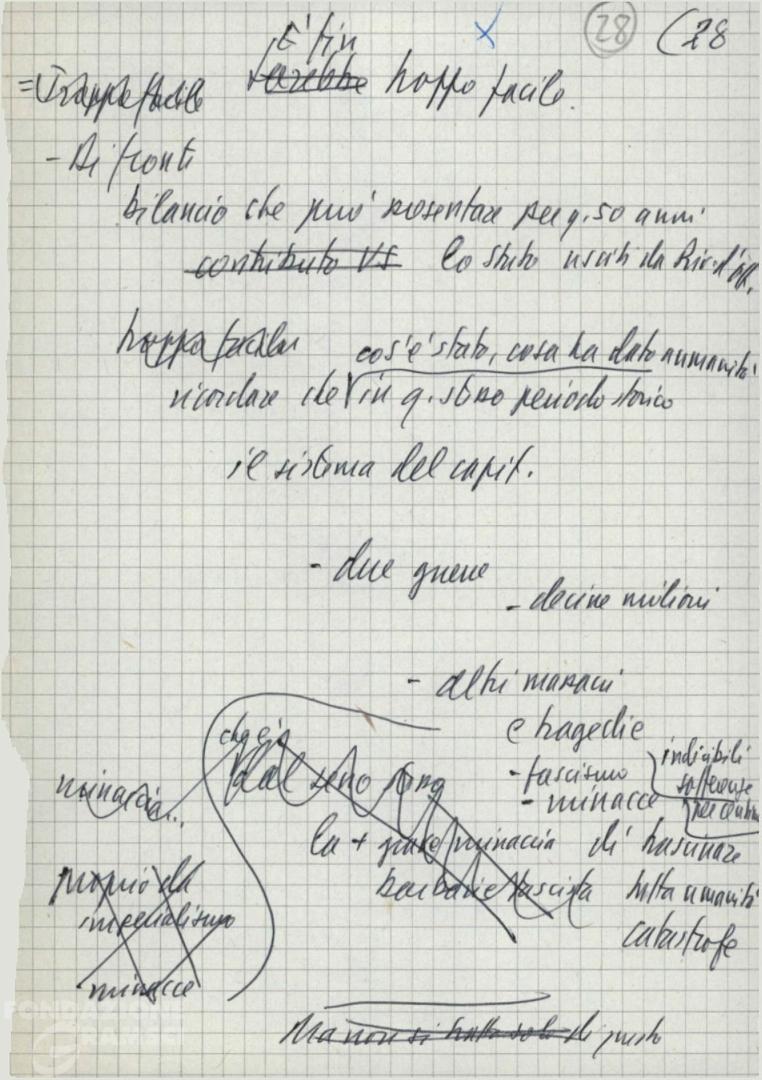 28 (28
È fin
= Troppo facile sarebbe troppo facile.
- Di fronti
bilancio che può presentare per q. 50 anni
contributo VS lo stato usciti da Riv. d'Ott.
troppo facile
cos'è stato, cosa ha dato a umanità
ricordare che in q. stesso periodo storico
il sistema del capit.
- due guerre
- decine milioni
- altri massacri
e tragedie
che è
indicibili
sofferenze
per centin
minaccia..
dal seno
- fascismo
- minacce
la + grave minaccia di trascinare
proprio da
imperialismo
minacce
barbarie fascista tutta umanità
catastrofe
Ma non si tratta solo di questo
FONDAZIONE